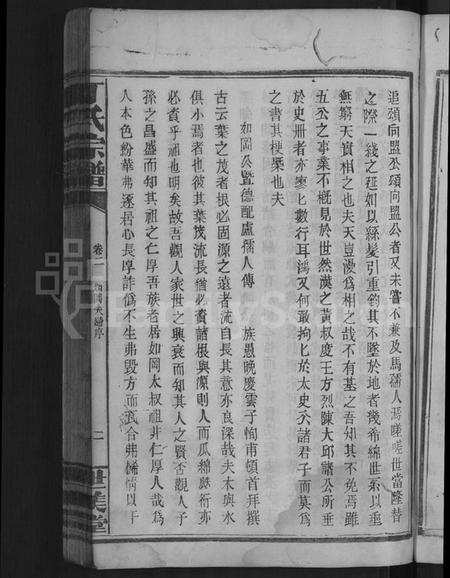 追頌向盟公頌向盟公者又未嘗不兼及馬孺人焉嗟嗟世當隆替
之際一綫之延如以絲髮引重鈞其不墜於地者幾希綿世系以垂
無窮天實相之也夫天豈漫為相之哉不有基之吾知其不免焉雖
五公之事業不概見於世然漢之黃叔度王方烈陳大邱諸公所垂
於史冊者亦寥匕數行耳鴻又何敢拘匕於太史公諸君子而莫為
之書其梗槩也夫
如岡公暨德配盧孺人傳 族愚晚慶雲子恂甫頓首拜撰
古云葉之茂者根必固源之遠者流自長其意亦良深哉夫木與水
俱小焉者也彼其葉茂流長猶必資諸根與源則人而瓜綿蔓衍亦
必資乎祖也明矣故吾觀人家世之興衰而知其人之賢否觀人子
孫之昌盛而知其祖之仁厚吾族老居如岡太叔祖非仁厚人哉為
人本色紛華弗逐居心長厚詐偽不生弗毀方而瓦合弗矯情以干
氏宗譜
卷二
如岡夫婦序
二
世美堂